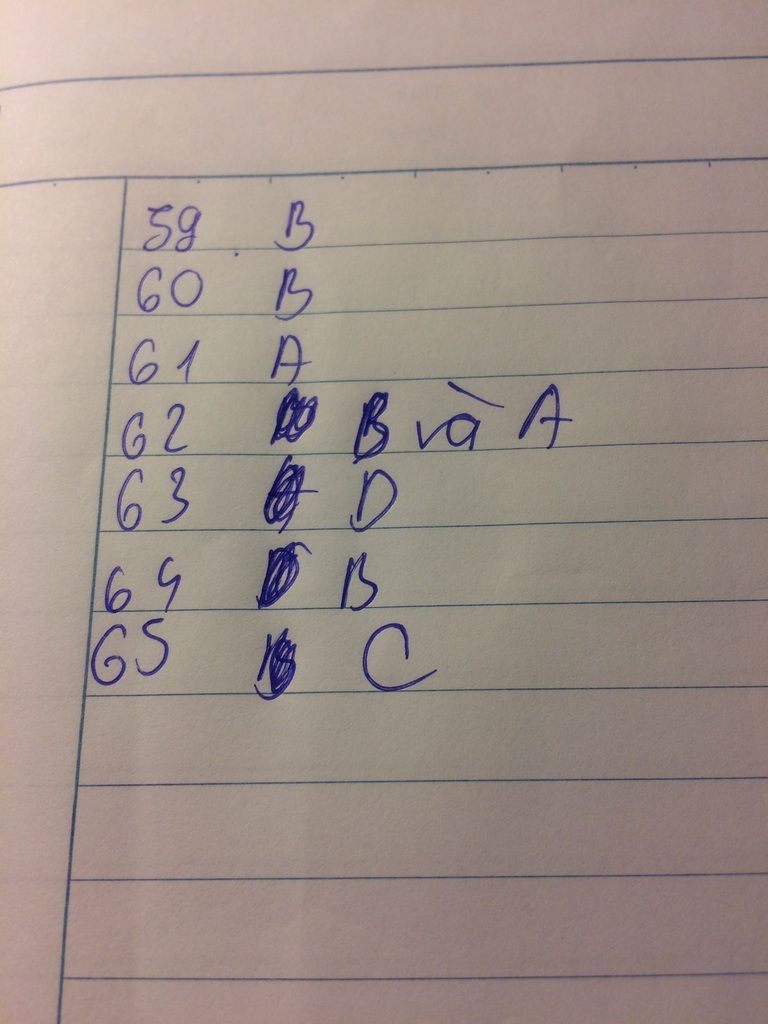 59 B
60 B
61 A
62 B và A
63 D
64 B
65 C